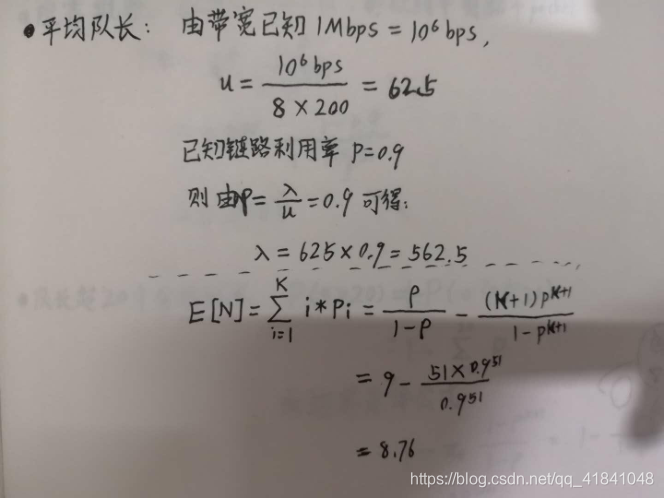 ●平均队长: 由带宽已知 1Mbps = 10⁶ bps,
u = 10⁶bps / 8×200 = 625
已知链路利用率 ρ=0.9
则由ρ= λ/u =0.9 可得:
λ = 625×0.9 = 562.5
E[N] = ∑_{i=1}^{K} i*Pi = ρ/(1-ρ) - (K+1)ρ^{K+1}/(1-ρ^{K+1})
= 9 - 51×0.9⁵¹/0.9⁵¹
= 8.76
https://blog.csdn.net/qq_41841048